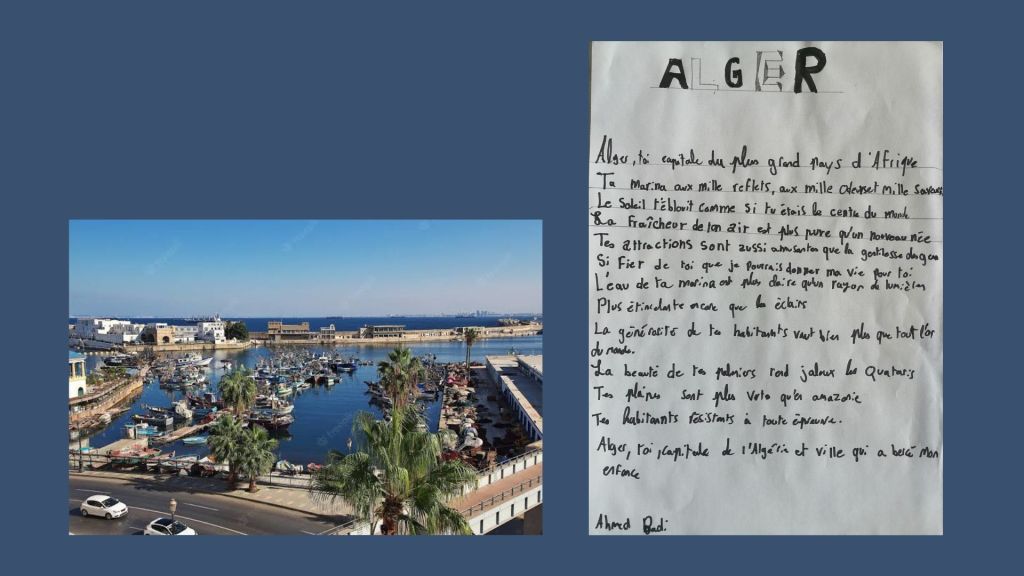 ALGER
Alger, toi capitale du plus grand pays d'Afrique
Ta marina aux mille reflets, aux mille odeurset mille saveurs
Le Soleil t'éblouit comme si tu étais le centre du monde
La Fraîcheur de ton air est plus pure qu'un nouveau née
Tes attractions sont aussi amusantes que la gentillesse des gens
Si Fier de toi que je pourrais donner ma vie pour toi
L'eau de ta marina est plus claire qu'un rayon de lumière
Plus étincelante encore que les éclairs
La générosité de tes habitants vaut bien plus que tout l'or
du monde.
La beauté de tes palmiers rend jaloux les Quataris
Tes plaines sont plus verte qu'en amazonie
Tes habitants résistants à toute épreuve.
Alger, toi capitale de l'Algérie et ville qui a bercé mon
enfance
Ahmed